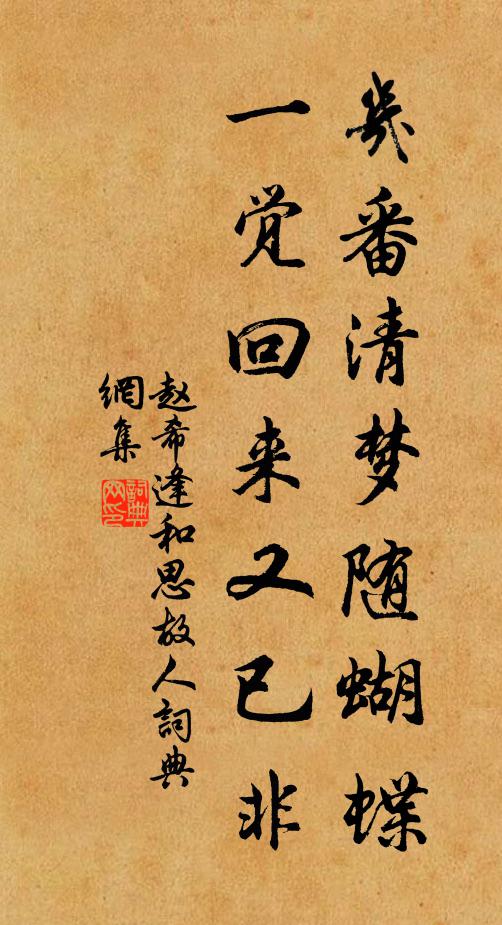 几番清梦随蝴蝶
一觉回来又已非
赵希逢和思故人詞典
網集
詞典
网印